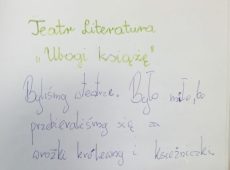 Teatr Literatura
„Ubogi książę"
Byliśmy w teatrze. Było miło, bo
przebieraliśmy się za
wróżki królewny i księżniczki